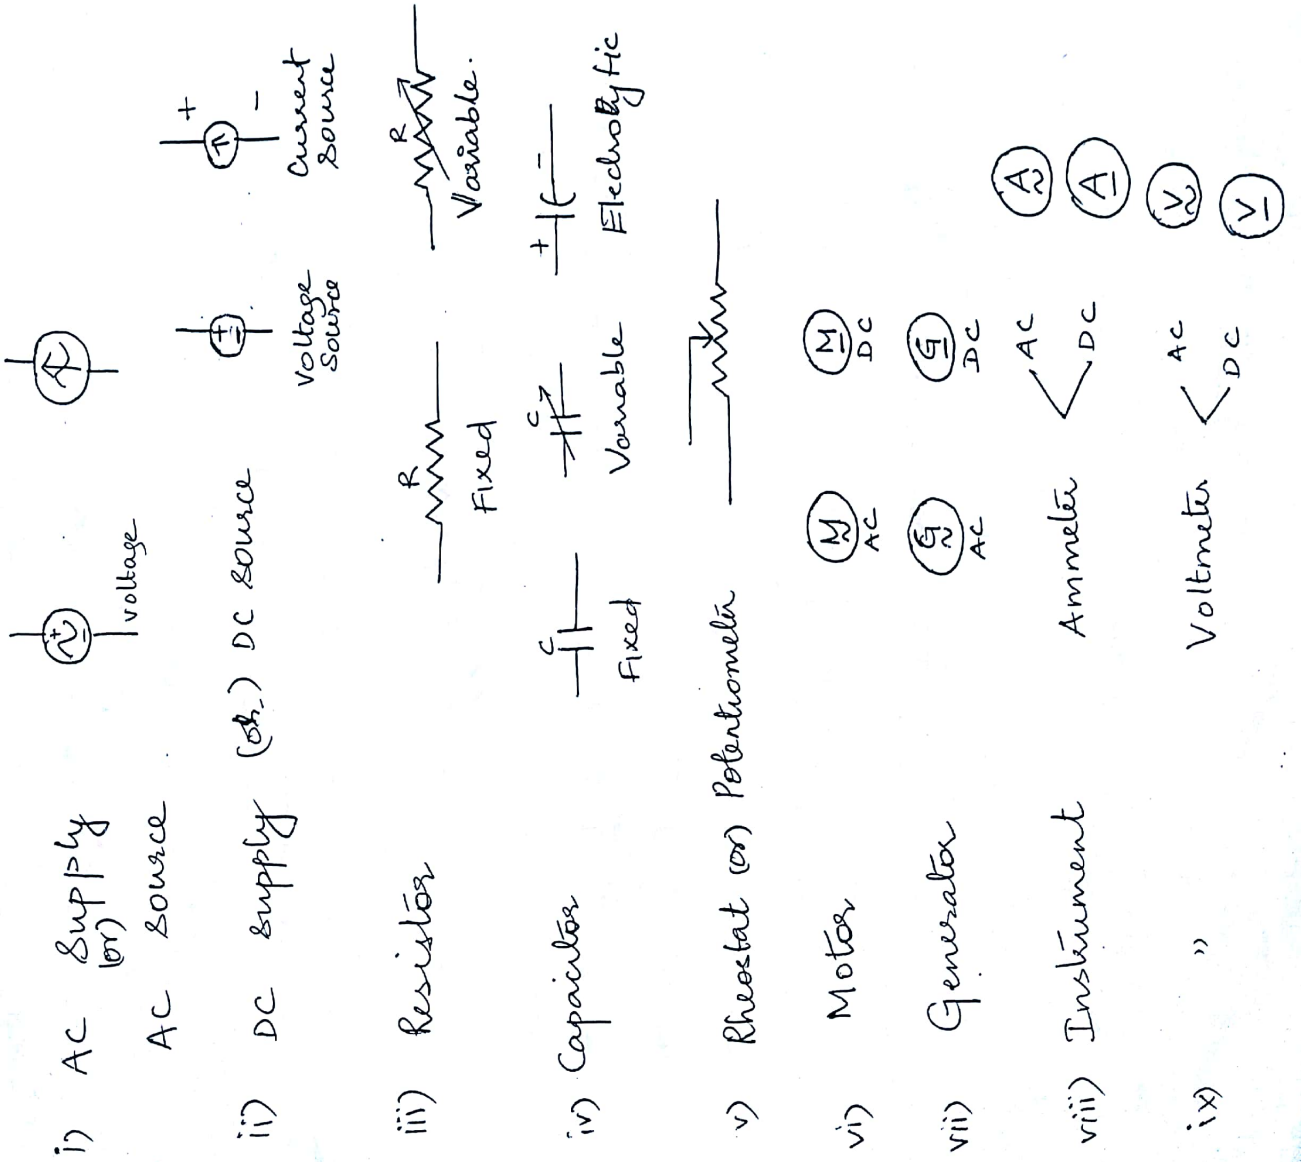 i) AC Supply
(or)
AC Source
voltage
ii) DC Supply (or) DC Source
Voltage Source
+ -
Current Source
iii) Resistor
R
Fixed
R
Variable.
iv) Capacitor
C
Fixed
C
Variable
+ -
Electrolytic
v) Rheostat (or) Potentiometer
vi) Motor M AC M DC
vii) Generator G AC G DC
viii) Instrument Ammeter AC A
DC A
ix) " Voltmeter AC V
DC V